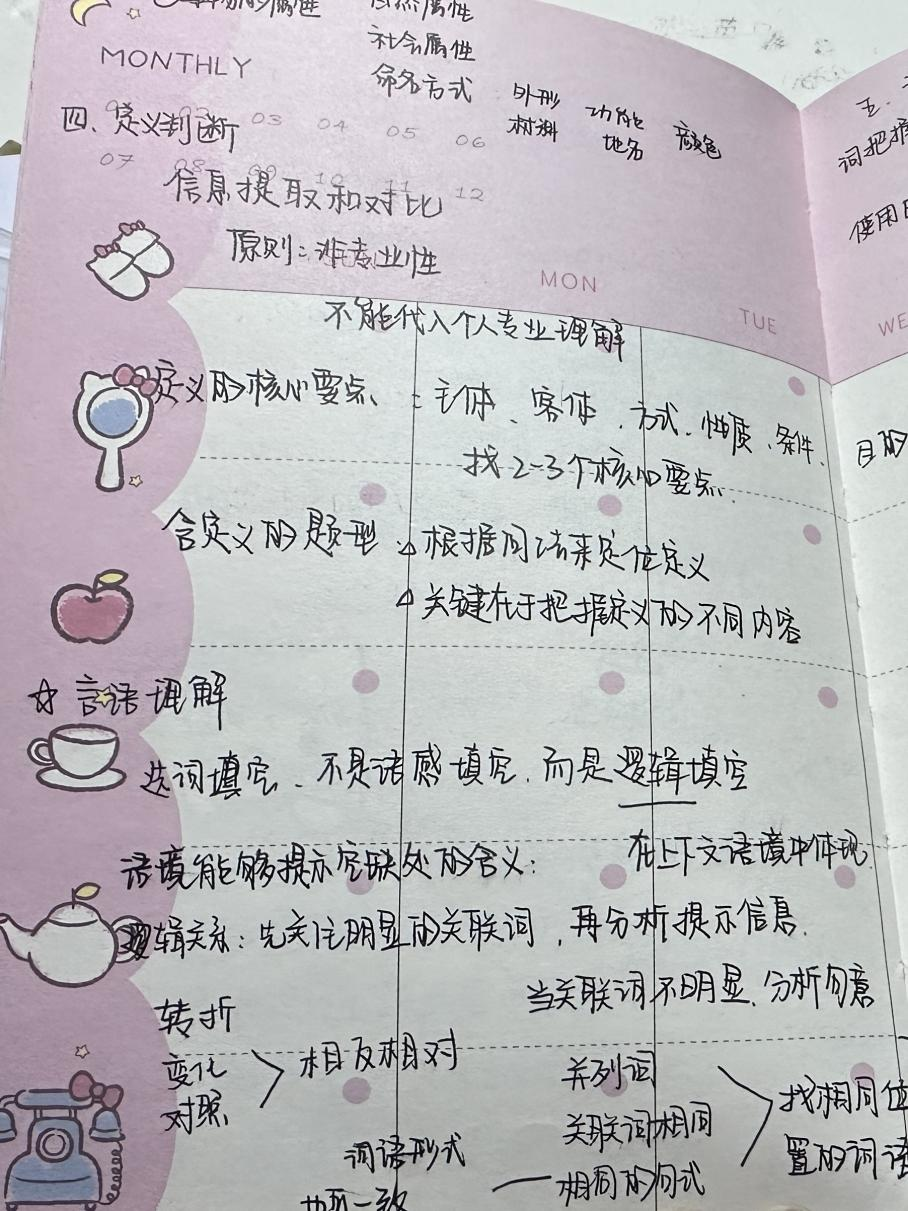 的属性 自然属性
社会属性
MONTHLY 命名方式 外形 功能 颜色
材料 地名
四、定义判断
03 04 05 06
07 08 09 10 11 12
信息提取和对比
原则：非专业性
MON
TUE
WE
不能代入个人专业理解
定义的核心要点：主体、客体、方式、性质、条件、目的
找2-3个核心要点
含定义的题型 根据问法来定位定义
关键在于把握定义的不同内容
☆ 言语理解
选词填空、不是语感填空，而是逻辑填空
语境能够提示空缺处的含义： 在上下文语境中体现
逻辑关系：先关注明显的关联词，再分析提示信息.
当关联词不明显，分析句意
转折
变化 相反相对
对照
并列词
关联词相同 找相同位
相同的句式 置的词语
词语形式
一致
五、
词把握
使用